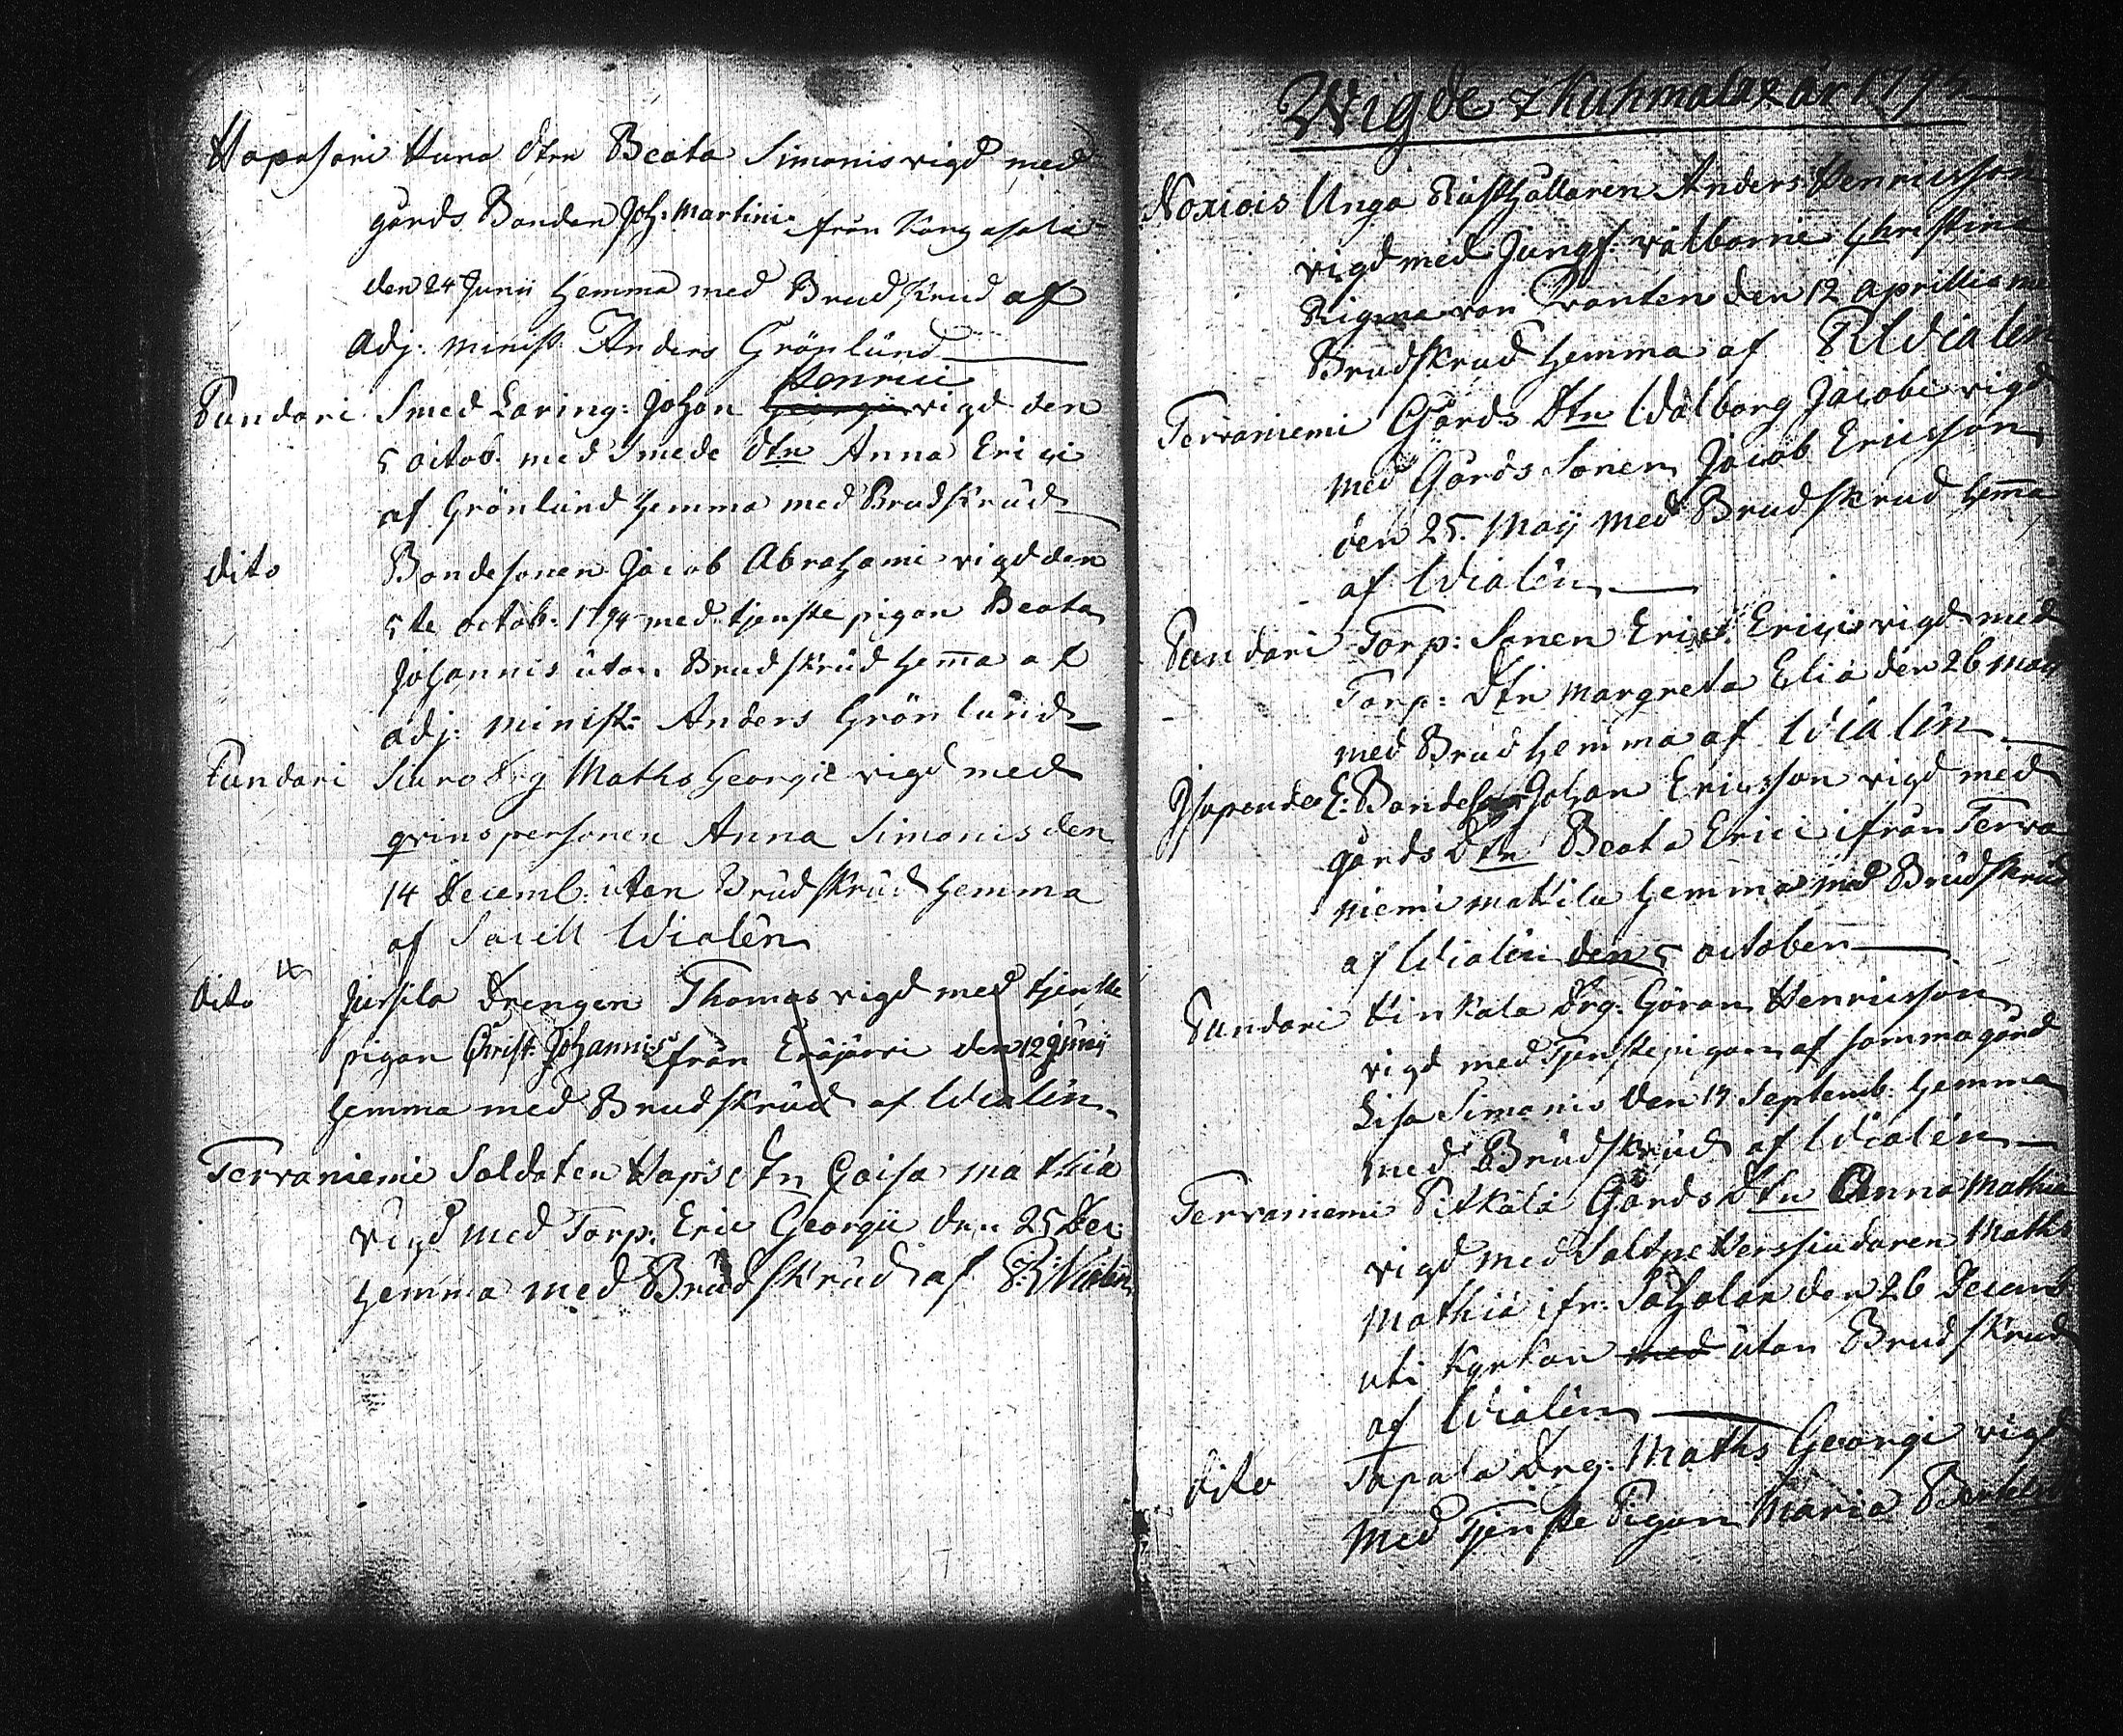 Haposari Huna dtrn Beata Simonis vigd med
gårds Bonden Joh: Martini från Kangasala
den 24 Junii hemma med Brudskrud af
Adj: minist: Anders Grönlund
Henrici
Pundari Smed Läring: Johan Georgii vigd den
5 octob. med Smeds dtrn Anna Erici
af Grönlund hemma med Brudskrud
dito Bondesonen Jacob Abrahami vigd den
5te octob: 1794 med tjenste pigan Beata
Johannis utan Brudskrud hem̅a af
adj: minist: Anders Grönlund
Pundari Siuro drg Maths Georgii vigd med
qvins personen Anna Simonis den
14 Decemb: utan Brudskrud hemma
af Sacell Wialén
dito Jussila Drengen Thomas vigd med tjenste
pigan Christ: Johannis från Eräjärvi den 12 Junij
hemma med Brudskrud af Wialén
Terraniemi Soldaten Haps dtr Caisa Mathiæ
vigd med Torp: Eric Georgii den 25 Dec:
hemma med Brudskrud af P: Wialén
Wigde i Kuhmalax år 1795
Noxiois Unga Rusthållaren Anders Henricsson
vigd med Jungf: välborne Christina
Rigina von Qvanten den 12 aprillis med
Brudskrud hemma af P Wialén
Terraniemi Gårds Dtn Walborg Jacobi vigd
med Gårds Sonen Jacob Ericsson
den 25. Maij med Brudskrud hem̅a
af Wialén
Pundari Torp: Sonen Eric Erici vigd med
Torp: Dtn Margreta Eliæ den 26 Maij
med Brud hemma af Wialén
Johan Ericsson vigd med
gårds Dtn Beata Erici ifrån Terra
niemi Mattila hemma med Brudskrud
af Wialén den 5 october
Pundari Hinkala drg: Göran Henricsson
vigd med Tjenstepigan af samma gård
Lisa Simonis den 19 Septemb: hemma
med Brudskrud af Wialén
Terraniemi Pitkälä Gårds Dtn Anna Mathiæ
vigd med Saltpettersiudaren Maths
Mathiæ ifr: Sahalax den 26 Decemb
uti Kyrkan med utan Brudskrud
af Wialén
dito Tapala Drg: Maths Georgi vigd
med Tjenste Pigan Maria